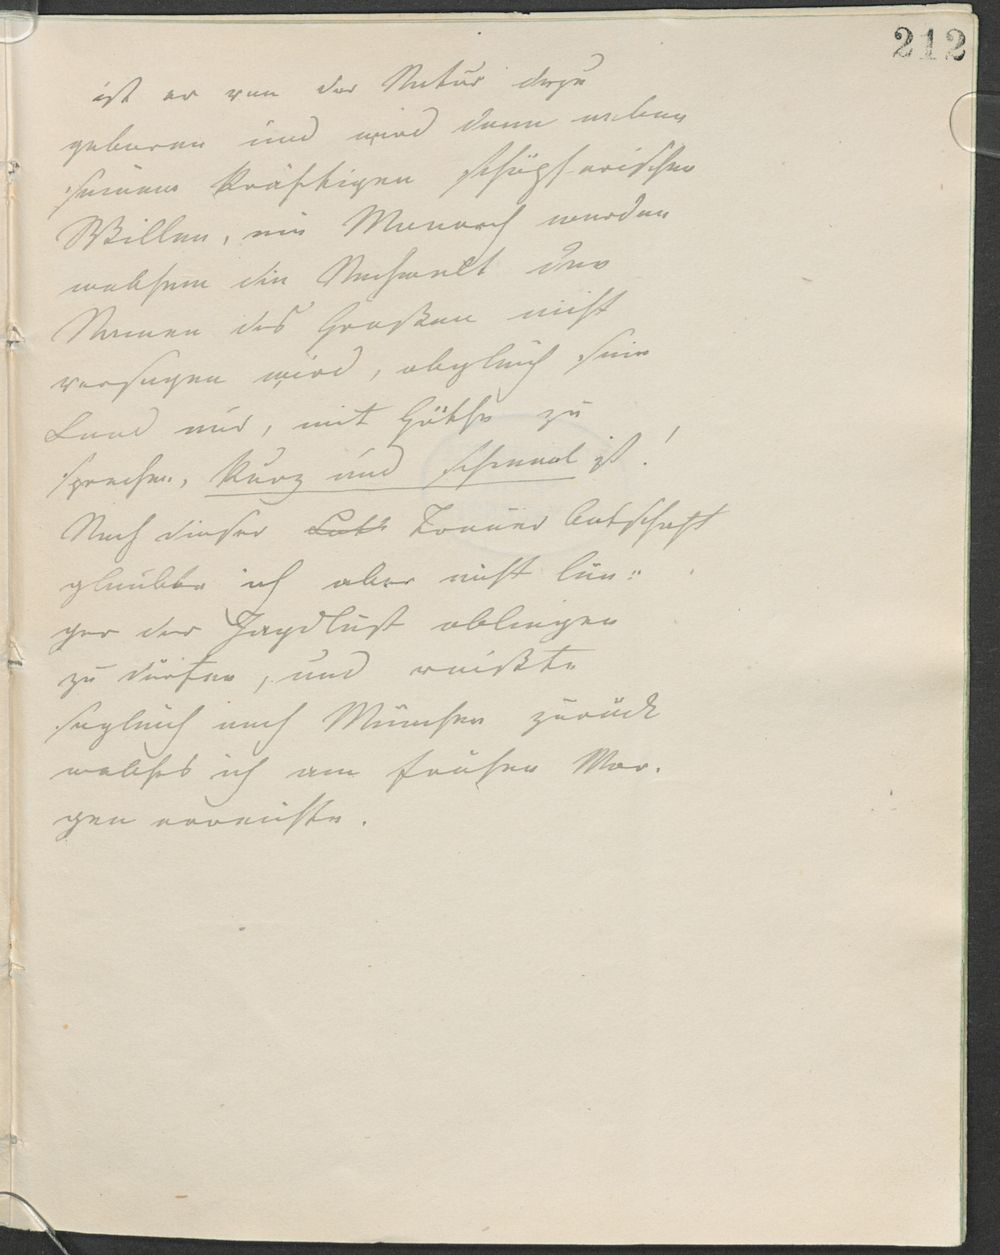 212
ist er von der Natur dazu
geboren und wird dann neben
seinem kräftigen schöpferischen
Willen, ein Monarch werden
welchem die Nachwelt den
Namen des Großen nicht
versagen wird, obgleich sein
Land nur, mit Göthe zu
sprechen, kurz und schmal ist!
Nach dieser Trauer Botschaft
glaubte ich aber nicht län=
ger der Jagdlust obliegen
zu dürfen, und reißte
sogleich nach München zurück
welches ich am frühen Mor.
gen erreichte.